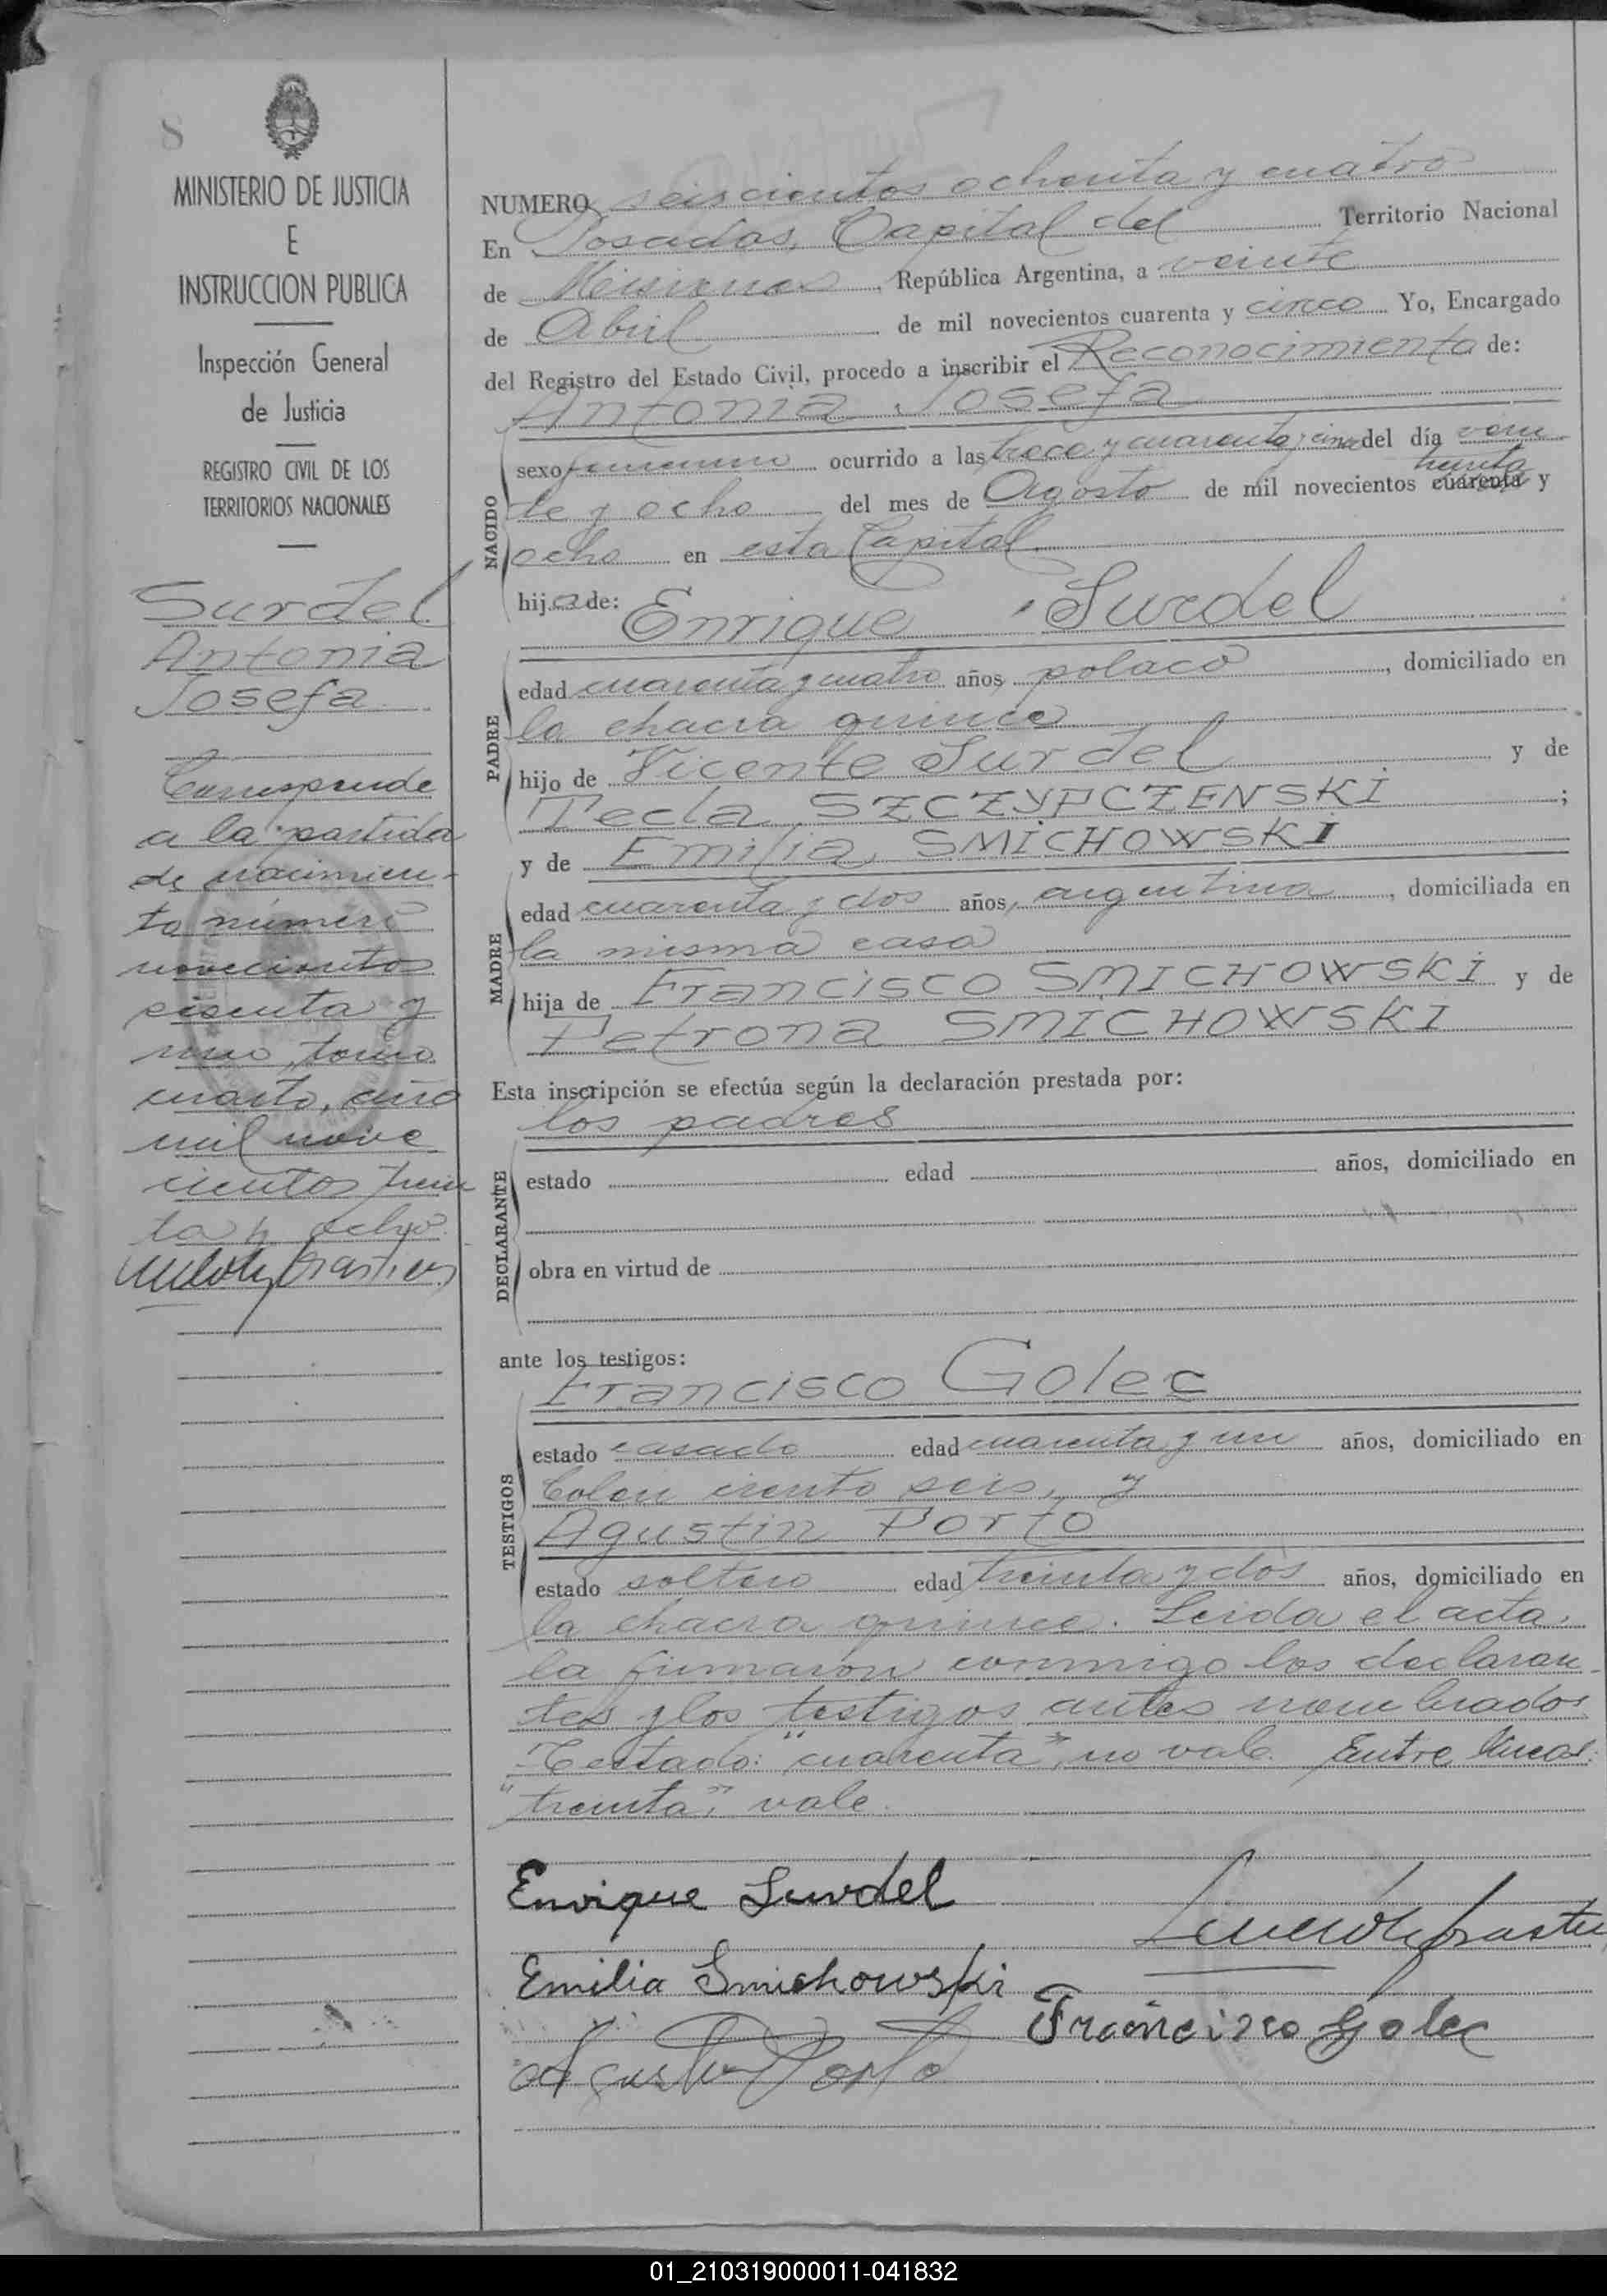 8
MINISTERIO DE JUSTICIA
E
INSTRUCCION PUBLICA
Inspección General
de Justicia
REGISTRO CIVIL DE LOS
TERRITORIOS NACIONALES
Surdel
Antonia
Josefa
Corresponde
a la partida
de nacimien-
to número
novecientos
sesenta y
uno, tomo
cuarto, año
mil nove
cientos trein
ta y ocho.
NUMERO seiscientos ochenta y cuatro
En Posadas, Capital del Territorio Nacional
de Misiones, República Argentina, a veinte
de Abril de mil novecientos cuarenta y cinco Yo, Encargado
del Registro del Estado Civil, procedo a inscribir el Reconocimiento de:
Antonia Josefa
NACIDO
sexo femenino ocurrido a las trece y cuarenta y cinco del día vein
treinta
te y ocho del mes de Agosto de mil novecientos cuarenta y
ocho en esta Capital
hija de: Enrique Surdel
PADRE
edad cuarenta y cuatro años, polaco, domiciliado en
la chacra quince
hijo de Vicente Surdel y de
Tecla SZCZYPCZENSKI;
y de Emilia SMICHOWSKI
MADRE
edad cuarenta y dos años, argentina, domiciliada en
la misma casa
hija de Francisco SMICHOWSKI y de
Petrona SMICHOWSKI
Esta inscripción se efectúa según la declaración prestada por:
los padres
DECLARANTE
estado edad años, domiciliado en
obra en virtud de
ante los testigos:
Francisco Golec
TESTIGOS
estado casado edad cuarenta y un años, domiciliado en
Colon ciento seis, y
Agustin Porto
estado soltero edad treinta y dos años, domiciliado en
la chacra quince. Leida el acta,
la firmaron conmigo los declaran-
tes y los testigos antes nombrados
Testado: "cuarenta", no vale. Entre líneas:
"treinta", vale.
Enrique Surdel
Emilia Smichowski
Francisco Golec
Agustin Porto
01_210319000011-041832